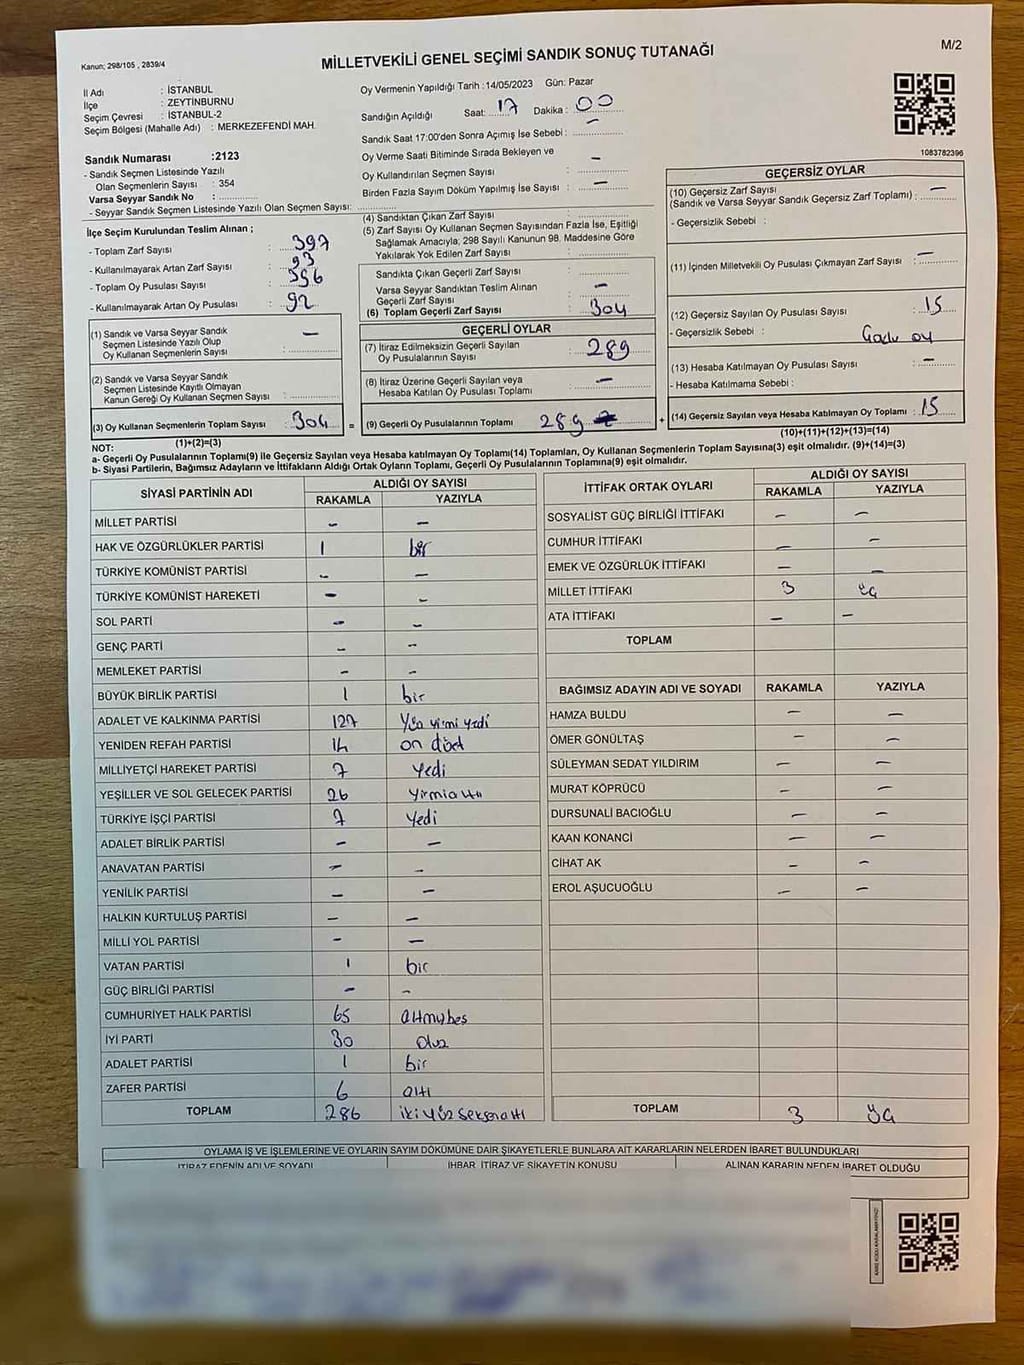 Kanun; 298/105 , 2839/4
MİLLETVEKİLİ GENEL SEÇİMİ SANDIK SONUÇ TUTANAĞI
M/2
İl Adı : İSTANBUL
İlçe : ZEYTİNBURNU
Seçim Çevresi : İSTANBUL-2
Seçim Bölgesi (Mahalle Adı) : MERKEZEFENDİ MAH.
Sandık Numarası :2123
- Sandık Seçmen Listesinde Yazılı
Olan Seçmenlerin Sayısı : 354
Varsa Seyyar Sandık No :
- Seyyar Sandık Seçmen Listesinde Yazılı Olan Seçmen Sayısı:
Oy Vermenin Yapıldığı Tarih :14/05/2023 Gün: Pazar
Sandığın Açıldığı Saat: 17 Dakika : 00
Sandık Saat 17:00'den Sonra Açımış İse Sebebi : –
Oy Verme Saati Bitiminde Sırada Bekleyen ve
Oy Kullandırılan Seçmen Sayısı : –
Birden Fazla Sayım Döküm Yapılmış İse Sayısı : –
1083782396
İlçe Seçim Kurulundan Teslim Alınan ;
- Toplam Zarf Sayısı : 397
- Kullanılmayarak Artan Zarf Sayısı : 93
- Toplam Oy Pusulası Sayısı : 396
- Kullanılmayarak Artan Oy Pusulası : 92
(1) Sandık ve Varsa Seyyar Sandık
Seçmen Listesinde Yazılı Olup
Oy Kullanan Seçmenlerin Sayısı : –
(2) Sandık ve Varsa Seyyar Sandık
Seçmen Listesinde Kayıtlı Olmayan
Kanun Gereği Oy Kullanan Seçmen Sayısı :
(3) Oy Kullanan Seçmenlerin Toplam Sayısı : 304 =
(1)+(2)=(3)
(4) Sandıktan Çıkan Zarf Sayısı :
(5) Zarf Sayısı Oy Kullanan Seçmen Sayısından Fazla İse, Eşitliği
Sağlamak Amacıyla; 298 Sayılı Kanunun 98. Maddesine Göre
Yakılarak Yok Edilen Zarf Sayısı :
Sandıkta Çıkan Geçerli Zarf Sayısı :
Varsa Seyyar Sandıktan Teslim Alınan
Geçerli Zarf Sayısı : –
(6) Toplam Geçerli Zarf Sayısı : 304
GEÇERLİ OYLAR
(7) İtiraz Edilmeksizin Geçerli Sayılan
Oy Pusulalarının Sayısı : 289
(8) İtiraz Üzerine Geçerli Sayılan veya
Hesaba Katılan Oy Pusulası Toplamı : –
(9) Geçerli Oy Pusulalarının Toplamı 289 +
GEÇERSİZ OYLAR
(10) Geçersiz Zarf Sayısı
(Sandık ve Varsa Seyyar Sandık Geçersiz Zarf Toplamı) : –
- Geçersizlik Sebebi :
(11) İçinden Milletvekili Oy Pusulası Çıkmayan Zarf Sayısı : –
(12) Geçersiz Sayılan Oy Pusulası Sayısı : 15
- Geçersizlik Sebebi :
(13) Hesaba Katılmayan Oy Pusulası Sayısı : –
- Hesaba Katılmama Sebebi :
(14) Geçersiz Sayılan veya Hesaba Katılmayan Oy Toplamı : 15
(10)+(11)+(12)+(13)=(14)
NOT:
a- Geçerli Oy Pusulalarının Toplamı(9) ile Geçersiz Sayılan veya Hesaba katılmayan Oy Toplamı(14) Toplamları, Oy Kullanan Seçmenlerin Toplam Sayısına(3) eşit olmalıdır. (9)+(14)=(3)
b- Siyasi Partilerin, Bağımsız Adayların ve İttifakların Aldığı Ortak Oyların Toplamı, Geçerli Oy Pusulalarının Toplamına(9) eşit olmalıdır.
SİYASİ PARTİNİN ADI ALDIĞI OY SAYISI
RAKAMLA YAZIYLA
MİLLET PARTİSİ – –
HAK VE ÖZGÜRLÜKLER PARTİSİ 1 bir
TÜRKİYE KOMÜNİST PARTİSİ – –
TÜRKİYE KOMÜNİST HAREKETİ – –
SOL PARTİ – –
GENÇ PARTİ – –
MEMLEKET PARTİSİ – –
BÜYÜK BİRLİK PARTİSİ 1 bir
ADALET VE KALKINMA PARTİSİ 127 Yüz yirmi yedi
YENİDEN REFAH PARTİSİ 14 on dört
MİLLİYETÇİ HAREKET PARTİSİ 7 yedi
YEŞİLLER VE SOL GELECEK PARTİSİ 26 yirmialtı
TÜRKİYE İŞÇİ PARTİSİ 7 yedi
ADALET BİRLİK PARTİSİ – –
ANAVATAN PARTİSİ – –
YENİLİK PARTİSİ – –
HALKIN KURTULUŞ PARTİSİ – –
MİLLİ YOL PARTİSİ – –
VATAN PARTİSİ 1 bir
GÜÇ BİRLİĞİ PARTİSİ – –
CUMHURİYET HALK PARTİSİ 65 altmışbeş
İYİ PARTİ 30 otuz
ADALET PARTİSİ 1 bir
ZAFER PARTİSİ 6 altı
TOPLAM 286 iki yüz seksen altı
İTTİFAK ORTAK OYLARI ALDIĞI OY SAYISI
RAKAMLA YAZIYLA
SOSYALİST GÜÇ BİRLİĞİ İTTİFAKI – –
CUMHUR İTTİFAKI – –
EMEK VE ÖZGÜRLÜK İTTİFAKI – –
MİLLET İTTİFAKI 3 üç
ATA İTTİFAKI – –
TOPLAM
BAĞIMSIZ ADAYIN ADI VE SOYADI RAKAMLA YAZIYLA
HAMZA BULDU – –
ÖMER GÖNÜLTAŞ – –
SÜLEYMAN SEDAT YILDIRIM – –
MURAT KÖPRÜCÜ – –
DURSUNALİ BACIOĞLU – –
KAAN KONANCİ – –
CİHAT AK – –
EROL AŞUCUOĞLU – –
TOPLAM 3 üç
OYLAMA İŞ VE İŞLEMLERİNE VE OYLARIN SAYIM DÖKÜMÜNE DAİR ŞİKAYETLERLE BUNLARA AİT KARARLARIN NELERDEN İBARET BULUNDUKLARI
İTİRAZ EDENİN ADI VE SOYADI İHBAR, İTİRAZ VE ŞİKAYETİN KONUSU ALINAN KARARIN NEDEN İBARET OLDUĞU